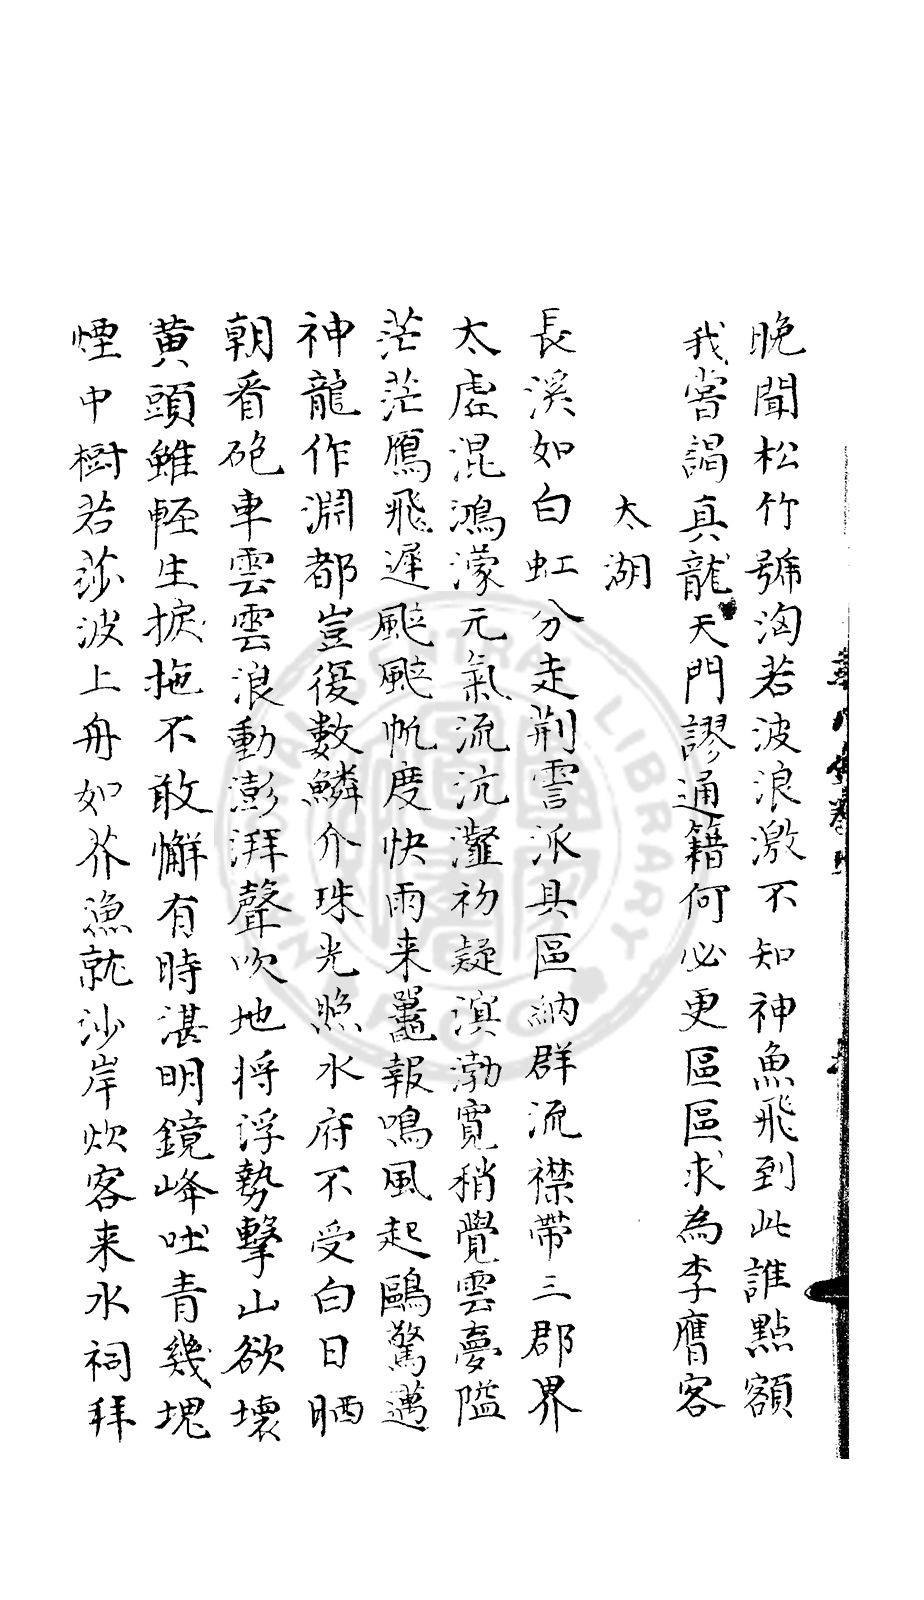 晚聞松竹號洶若波浪激不知神魚飛到此誰點額
我嘗謁真龍天門謬通籍何必更區區求為李膺客
太湖
長溪如白虹分走荆霅派具區納群流襟帶三郡界
太虛混鴻濛元氣流沆瀣初疑溟渤寬稍覺雲夢隘
茫茫鴈飛遲颭颭帆度快雨来鼉報鳴風起鷗驚邁
神龍作淵都豈復數鱗介珠光照水府不受白日晒
朝看砲車雲雲浪動澎湃聲吹地将浮勢擊山欲壞
黄頭雖輕生捩拖不敢懈有時湛明鏡峰吐青幾塊
煙中樹若莎波上舟如芥漁就沙岸炊客来水祠拜
NATIONAL CENTRAL LIBRARY